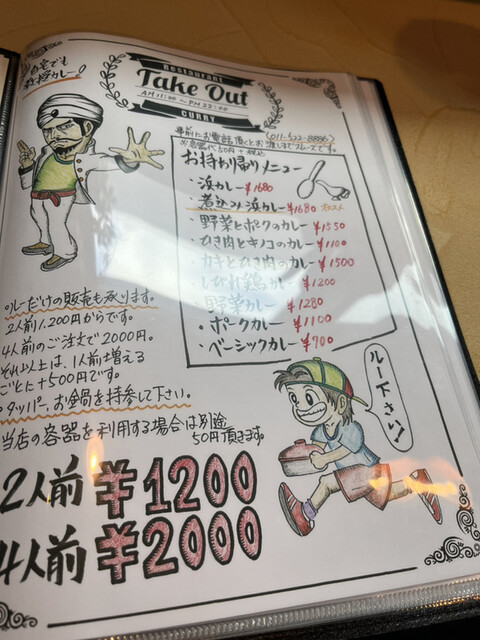 Restaurant
Take Out
AM 11:00 ~ PM 22:00
CURRY
事前にお電話頂くとお渡しまでスムーズです。
※容器代50円+税込
お持ち帰りメニュー
・浜カレー ¥1680
・煮込み浜カレー ¥1680 オススメ
・野菜とポークのカレー ¥1550
・ひき肉とキノコのカレー ¥1100
・カキとひき肉のカレー ¥1500
・しびれ鶏カレー ¥1200
・野菜カレー ¥1280
・ポークカレー ¥1100
・ベーシックカレー ¥700
○ルーだけの販売も承ります。
2人前1,200円からです。
4人前のご注文で2000円。
それ以上は、1人前増える
ごとに+500円です。
○タッパー、お鍋を持参して下さい。
当店の容器を利用する場合は別途
50円頂きます。
ルー下さい!
2人前 ¥1200
4人前 ¥2000